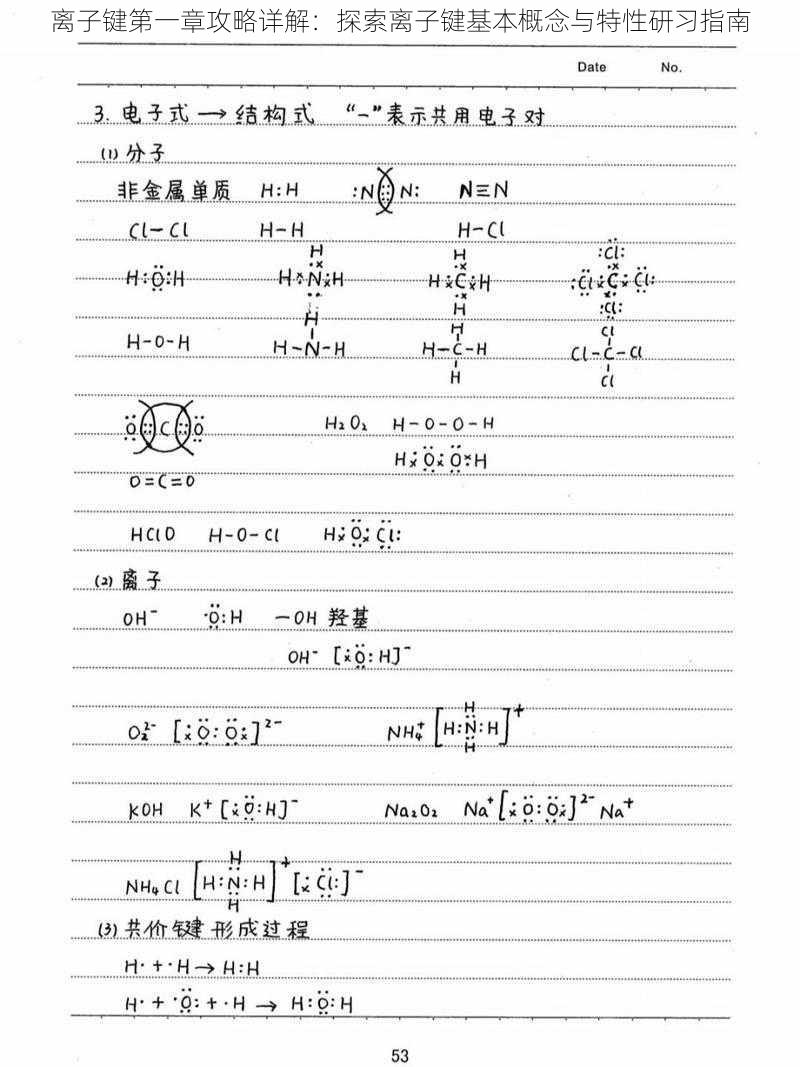 离子键第一章攻略详解：探索离子键基本概念与特性研习指南
Date No.
3. 电子式 → 结构式 “-”表示共用电子对
(1) 分子
非金属单质 H:H :N⋮⋮N: N≡N
Cl-Cl H-H H-Cl
H:O:H H N H H H C H H Cl C Cl Cl
H H Cl
H H Cl
H-O-H H-N-H H-C-H Cl-C-Cl
H Cl
O::C::O H₂O₂ H-O-O-H
H:O:O:H
O=C=O
HClO H-O-Cl H:O:Cl:
(2) 离子
OH⁻ ·O:H -OH 羟基
OH⁻ [:O:H]⁻
O₂²⁻ [:O:O:]²⁻ NH₄⁺ [H:N:H]⁺
H
H
KOH K⁺[:O:H]⁻ Na₂O₂ Na⁺[:O:O:]²⁻Na⁺
H
NH₄Cl [H:N:H]⁺[:Cl:]⁻
H
(3) 共价键形成过程
H· + ·H → H:H
H· + ·O: + ·H → H:O:H
53